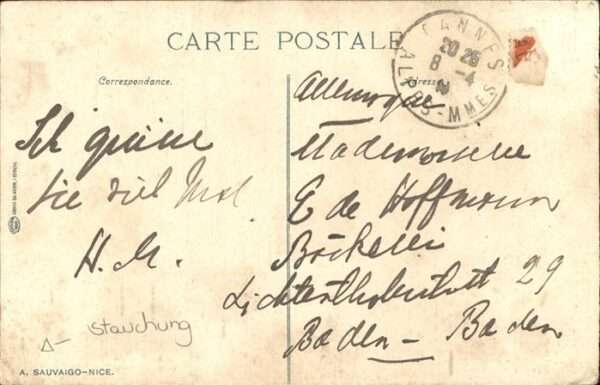 CARTE POSTALE
Correspondance.
Adresse
CANNES
20 26
8 - 4
ALPES-MMES
Allemagne
Mademoiselle
E de Hoffmann
Ich grüsse
Sie viel Mal
H. M.
29
Baden - Baden
Stauchung
A. SAUVAIGO-NICE.